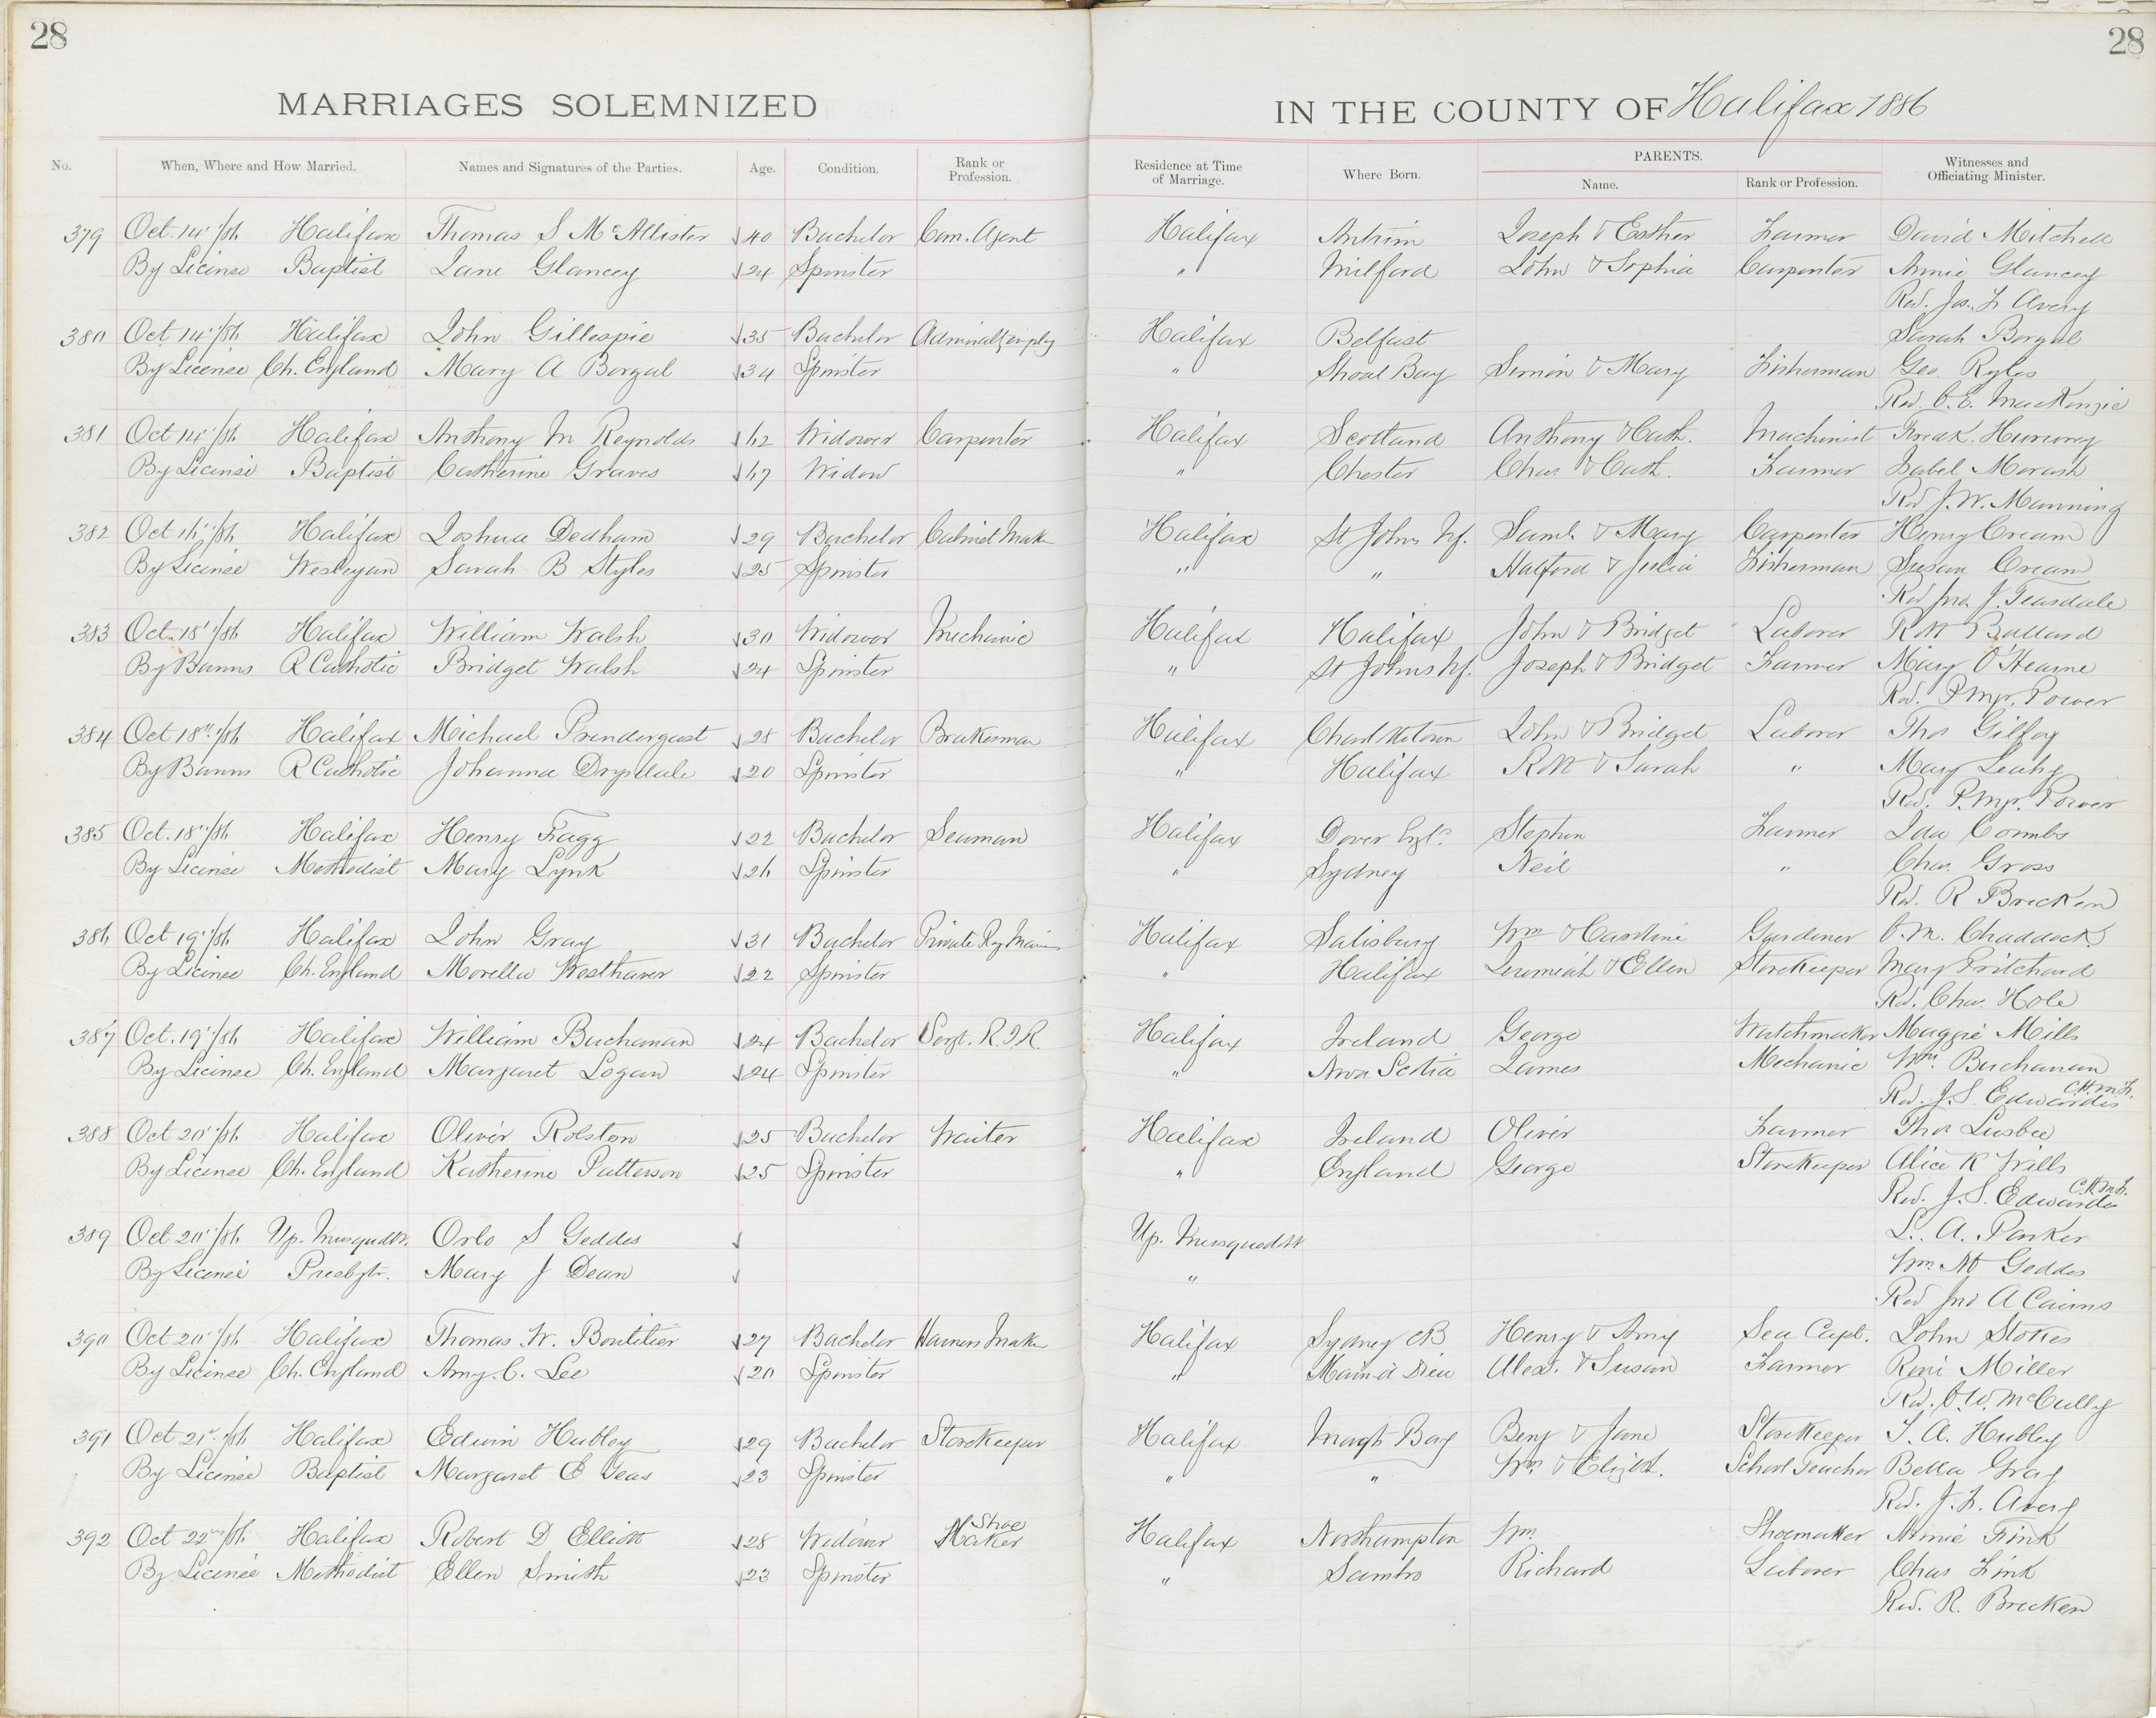 28
28
MARRIAGES SOLEMNIZED
IN THE COUNTY OF Halifax 1886
No. When, Where and How Married. Names and Signatures of the Parties. Age. Condition. Rank or Profession. Residence at Time of Marriage. Where Born. PARENTS. Name. Rank or Profession. Witnesses and Officiating Minister.
379 Oct. 14"/86 Halifax Thomas S McAllister 40 Bachelor Com. Agent Halifax Antrim Joseph & Esther Farmer David Mitchell
By License Baptist Jane Glancey 24 Spinster " Milford John & Sophia Carpenter Annie Glancey
Rev. Jos. F Avery
380 Oct 14"/86 Halifax John Gillespie 35 Bachelor Admiralty employ Halifax Belfast Sarah Borgal
By License Ch. England Mary A Borgal 34 Spinster " Shoal Bay Simon & Mary Fisherman Geo. Ryles
Rev. C. E. MacKenzie
381 Oct 14"/86 Halifax Anthony M Reynolds 62 Widower Carpenter Halifax Scotland Anthony & Cath. Machinist
By License Baptist Catherine Graves 67 Widow " Chester Chas & Cath. Farmer Isabel Morash
Rev J. W. Manning
382 Oct 16"/86 Halifax Joshua Dedham 29 Bachelor Cabinet Mak Halifax St Johns Nf. Saml. & Mary Carpenter Henry Cream
By License Wesleyan Sarah B Styles 25 Spinster " " Halford & Julia Fisherman Susan Cream
Rev Jno. J. Teasdale
383 Oct. 18"/86 Halifax William Walsh 30 Widower Mechanic Halifax Halifax John & Bridget Laborer Robt Ballard
By Banns R Catholic Bridget Walsh 24 Spinster " St Johns Nf. Joseph & Bridget Farmer Mary O'Hearne
Rev. P. Mgr. Power
384 Oct 18"/86 Halifax Michael Prendergast 28 Bachelor Brakesman Halifax Charlottetown John & Bridget Laborer Thos Gilfoy
By Banns R Catholic Johanna Drysdale 20 Spinster " Halifax Robt & Sarah " Mary Leahy
Rev. P. Mgr. Power
385 Oct. 18"/86 Halifax Henry Fagg 22 Bachelor Seaman Halifax Dover Engl. Stephen Farmer Ida Coombs
By License Methodist Mary Lynk 26 Spinster " Sydney Neil " Chas. Gross
Rev. R Brecken
386 Oct 19"/86 Halifax John Gray 31 Bachelor Private Ry Marin Halifax Salisbury Wm & Caroline Gardener C. M. Chaddock
By License Ch. England Morella Westhaver 22 Spinster " Halifax Jeremiah & Ellen Storekeeper Mary Pritchard
Rev. Chas. Hole
387 Oct. 19"/86 Halifax William Buchanan 24 Bachelor Sergt. R.I.R. Halifax Ireland George Watchmaker Maggie Mills
By License Ch. England Margaret Logan 24 Spinster " Nova Scotia James Mechanic Wm. Buchanan
Rev. J. S. Edwardes C.H.M.F.
388 Oct 20"/86 Halifax Oliver Rolston 25 Bachelor Waiter Halifax Ireland Oliver Farmer Thos Lusbee
By License Ch. England Katherine Patterson 25 Spinster " England George Storekeeper Alice K Wills
Rev. J. S. Edwardes C.H.M.F.
389 Oct 20"/86 Up. Musquodt. Orlo S Geddes Up. Musquodt L. A. Parker
By License Presbytr. Mary J Dean " Wm. M Geddes
Rev Jno A Cairns
390 Oct 20"/86 Halifax Thomas W. Boutilier 27 Bachelor Harness Mak Halifax Sydney CB Henry & Amy Sea Capt. John Stokes
By License Ch. England Amy. C. Lee 20 Spinster " Main à Dieu Alex. & Susan Farmer Reni Miller
Rev. C. W. McCully
391 Oct 21st/86 Halifax Edwin Hubley 29 Bachelor Storekeeper Halifax Margts Bay Benj & Jane Storekeeper T. A. Hubley
By License Baptist Margaret E Geas 23 Spinster " " Wm & Elizbt. School Teacher Bella Gray
Rev. J. F. Avery
392 Oct 22nd/86 Halifax Robert D Elliott 28 Widower Shoe Maker Halifax Northampton Wm. Shoemaker Minnie Fink
By License Methodist Ellen Smith 23 Spinster " Sambro Richard Laborer Chas Fink
Rev. R. Brecken